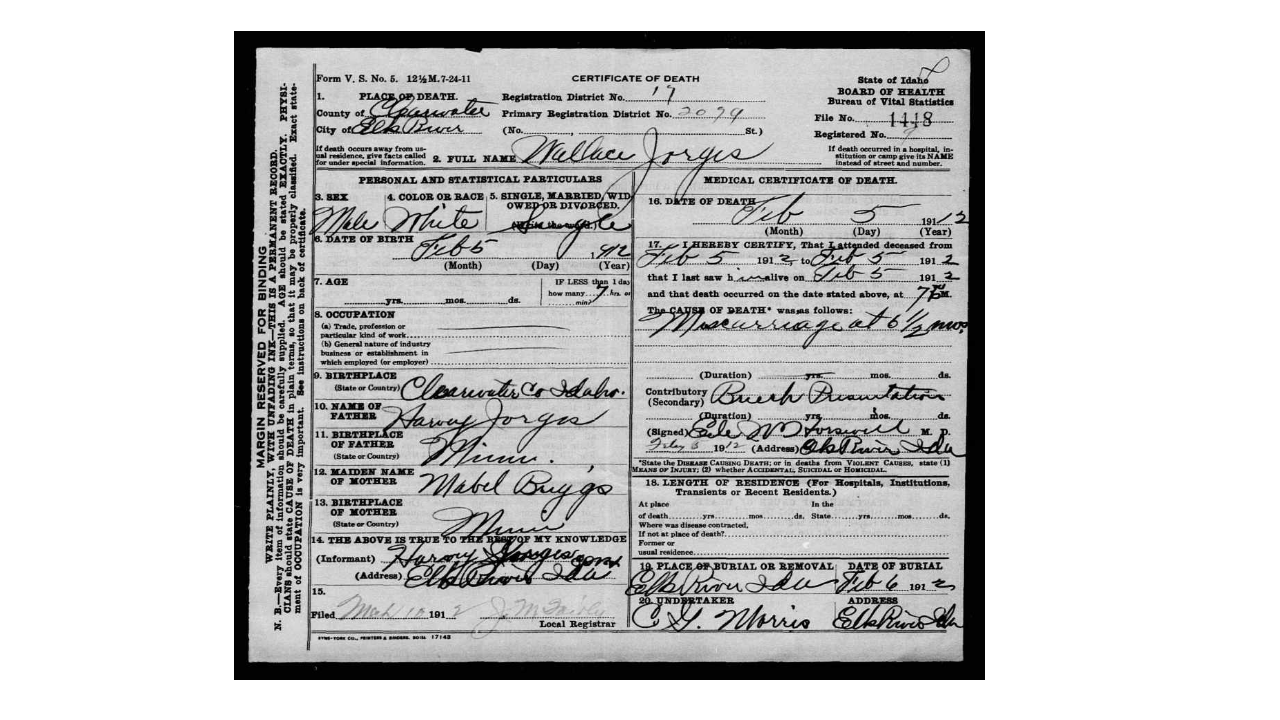 Form V. S. No. 5. 12½ M. 7-24-11
CERTIFICATE OF DEATH
State of Idaho
BOARD OF HEALTH
Bureau of Vital Statistics
File No. 1418
Registered No.
1. PLACE OF DEATH.
County of Clearwater
City of Elk River
Registration District No. 17
Primary Registration District No. 2094
(No. , St.)
If death occurs away from usual residence, give facts called for under special information.
2. FULL NAME Wallace Jorges
If death occurred in a hospital, institution or camp give its NAME instead of street and number.
PERSONAL AND STATISTICAL PARTICULARS
3. SEX Male
4. COLOR OR RACE White
5. SINGLE, MARRIED, WIDOWED OR DIVORCED. Single
6. DATE OF BIRTH Feb 5 1912
(Month) (Day) (Year)
7. AGE
yrs. mos. ds.
IF LESS than 1 day
how many 7 hrs. or
min?
8. OCCUPATION
(a) Trade, profession or particular kind of work
(b) General nature of industry business or establishment in which employed (or employer)
9. BIRTHPLACE
(State or Country) Clearwater Co Idaho.
10. NAME OF FATHER Harvy Jorges
11. BIRTHPLACE OF FATHER
(State or Country) Minn.
12. MAIDEN NAME OF MOTHER Mabel Briggs
13. BIRTHPLACE OF MOTHER
(State or Country) Minn
14. THE ABOVE IS TRUE TO THE BEST OF MY KNOWLEDGE
(Informant) Harvy Jorges
(Address) Elk River Ida
15.
Filed Mch 10 1912
Local Registrar
SYMS-YORK CO., PRINTERS & BINDERS, BOISE 17143
MEDICAL CERTIFICATE OF DEATH.
16. DATE OF DEATH
Feb 5 1912
(Month) (Day) (Year)
17. I HEREBY CERTIFY, That I attended deceased from
Feb 5 1912 to Feb 5 1912
that I last saw him alive on Feb 5 1912
and that death occurred on the date stated above, at 7 P M.
The CAUSE OF DEATH* was as follows:
Miscarriage at 6½ mos
(Duration) yrs. mos. ds.
Contributory (Secondary) Breech Presentation
(Duration) yrs. mos. ds.
(Signed) M. D.
1912 (Address) Elk River Ida
*State the DISEASE CAUSING DEATH; or in deaths from VIOLENT CAUSES, state (1) MEANS OF INJURY; (2) whether ACCIDENTAL, SUICIDAL or HOMICIDAL.
18. LENGTH OF RESIDENCE (For Hospitals, Institutions, Transients or Recent Residents.)
At place In the
of death yrs. mos. ds. State yrs. mos. ds.
Where was disease contracted,
If not at place of death?
Former or
usual residence
19. PLACE OF BURIAL OR REMOVAL DATE OF BURIAL
Elk River Ida Feb 6 1912
20. UNDERTAKER ADDRESS
C. G. Morris Elk River Ida
MARGIN RESERVED FOR BINDING
WRITE PLAINLY, WITH UNFADING INK—THIS IS A PERMANENT RECORD.
N. B.—Every item of information should be carefully supplied. AGE should be stated EXACTLY. PHYSI-
CIANS should state CAUSE OF DEATH in plain terms, so that it may be properly classified. Exact state-
ment of OCCUPATION is very important. See instructions on back of certificate.